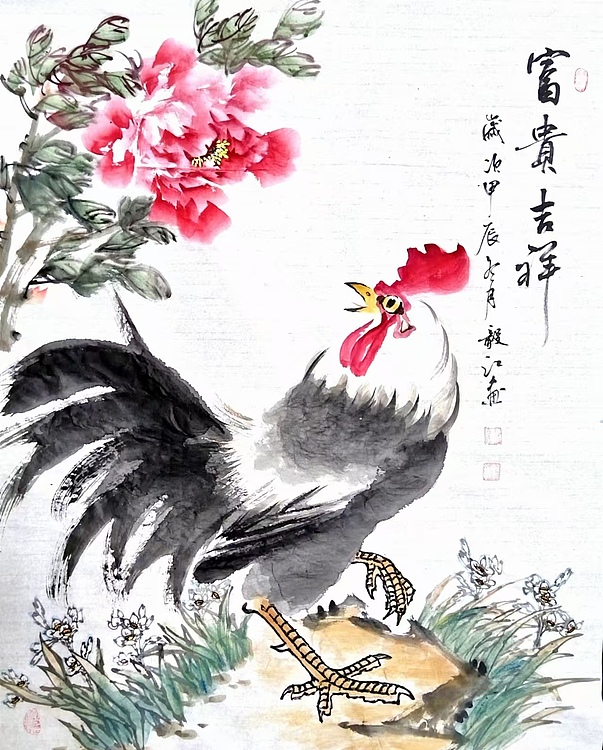 富貴吉祥
歲次甲辰冬月毅江畫